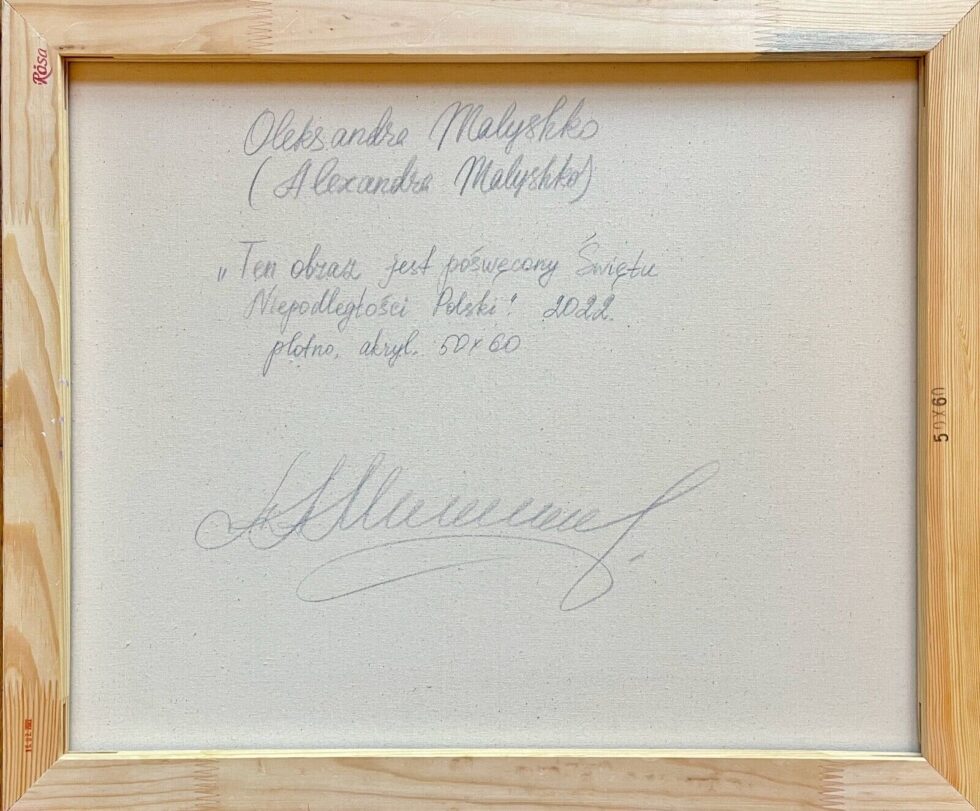 Rosa
Oleksandra Malyshko
(Alexandra Malyshko)
„Ten obraz jest poświęcony Świętu
Niepodległości Polski". 2022.
płotno, akryl. 50x60
50X60